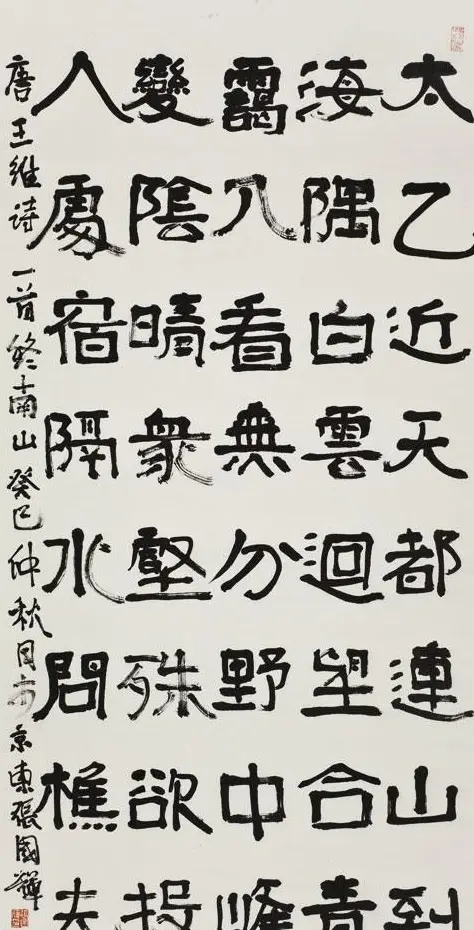 太乙近天都連山到
海隅白雲迴望合青
靄入看無分野中峰
變陰晴衆壑殊欲投
人處宿隔水問樵夫
唐王維诗一首終南山癸巳仲秋月於京東張國輝